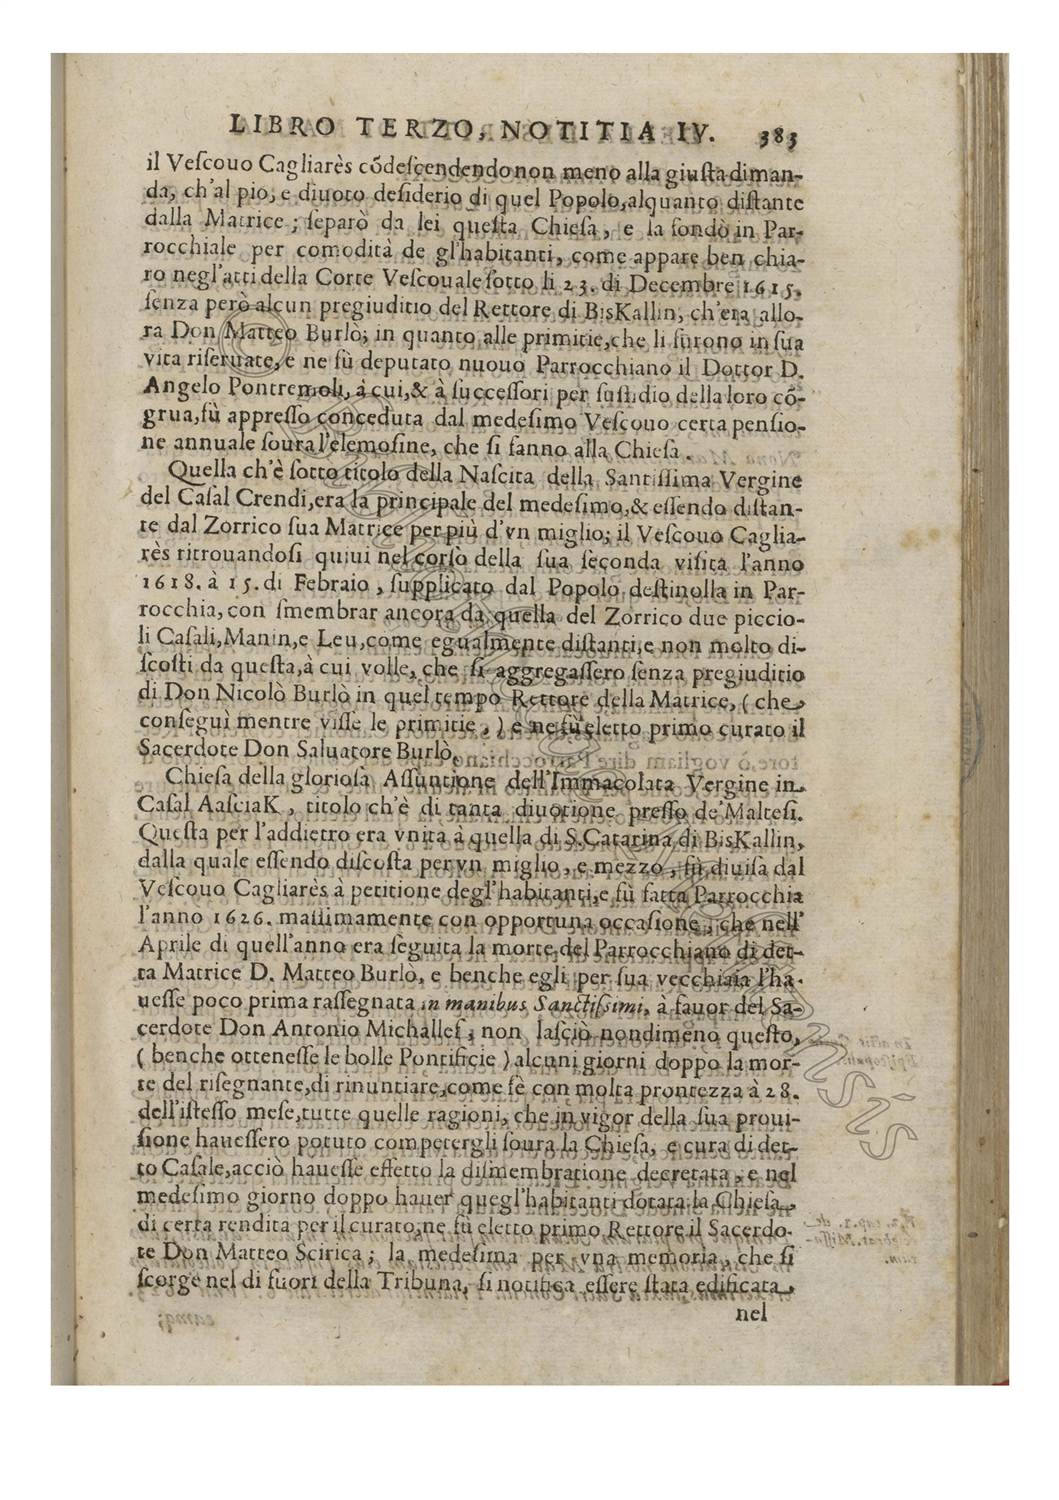 LIBRO TERZO, NOTITIA IV. 383
il Veſcouo Cagliarès cõdeſcendendo non meno alla giuſta diman-
da, ch'al pio, e diuoto deſiderio di quel Popolo, alquanto diſtante
dalla Matrice; ſeparò da lei queſta Chieſa, e la fondò in Par-
rocchiale per comodità de gl'habitanti, come appare ben chia-
ro negl'atti della Corte Veſcouale ſotto li 23. di Decembre 1615.
ſenza però alcun pregiuditio del Rettore di BisKallin, ch'era allo-
ra Don Matteo Burlò; in quanto alle primitie, che li furono in ſua
vita riſeruate, e ne fù deputato nuouo Parrocchiano il Dottor D.
Angelo Pontremoli, à cui, & à ſucceſſori per ſuſſidio della loro cõ-
grua, fù appreſſo conceduta dal medeſimo Veſcouo certa penſio-
ne annuale ſoura l'elemoſine, che ſi fanno alla Chieſa.
Quella ch'è ſotto titolo della Naſcita della Santiſſima Vergine
del Caſal Crendi, era la principale del medeſimo, & eſſendo diſtan-
te dal Zorrico ſua Matrice per più d'vn miglio; il Veſcouo Caglia-
rès ritrouandoſi quiui nel corſo della ſua ſeconda viſita l'anno
1618. à 15. di Febraio, ſupplicato dal Popolo deſtinolla in Par-
rocchia, con ſmembrar ancora da quella del Zorrico due piccio-
li Caſali, Manin, e Leu, come egualmente diſtanti, e non molto di-
ſcoſti da queſta, à cui volle, che ſi aggregaſſero ſenza pregiuditio
di Don Nicolò Burlò in quel tempo Rettore della Matrice, (che
conſeguì mentre viſſe le primitie,) e ne fù eletto primo curato il
Sacerdote Don Saluatore Burlò.
Chieſa della glorioſa Aſſuntione dell'Immacolata Vergine in
Caſal AaſciaK, titolo ch'è di tanta diuotione preſſo de' Malteſi.
Queſta per l'addietro era vnita à quella di S. Catarina di BisKallin,
dalla quale eſſendo diſcoſta per vn miglio, e mezzo, fù diuiſa dal
Veſcouo Cagliarès à petitione degl'habitanti, e fù fatta Parrocchia
l'anno 1626. maſſimamente con opportuna occaſione, che nell'
Aprile di quell'anno era ſeguita la morte del Parrocchiano di det-
ta Matrice D. Matteo Burlò, e benche egli per ſua vecchiaia l'ha-
ueſſe poco prima raſſegnata in manibus Sanctiſsimi, à fauor del Sa-
cerdote Don Antonio Michallef; non laſciò nondimeno queſto,
(benche otteneſſe le bolle Pontificie) alcuni giorni doppo la mor-
te del riſegnante, di rinuntiare, come fè con molta prontezza à 28.
dell'iſteſſo meſe, tutte quelle ragioni, che in vigor della ſua proui-
ſione haueſſero potuto competergli ſoura la Chieſa, e cura di det-
to Caſale, acciò haueſſe effetto la diſmembratione decretata, e nel
medeſimo giorno doppo hauer quegl'habitanti dotata la Chieſa,
di certa rendita per il curato, ne fù eletto primo Rettore il Sacerdo-
te Don Matteo Scirica; la medeſima per vna memoria, che ſi
ſcorge nel di fuori della Tribuna, ſi notifica eſſere ſtata edificata,
nel